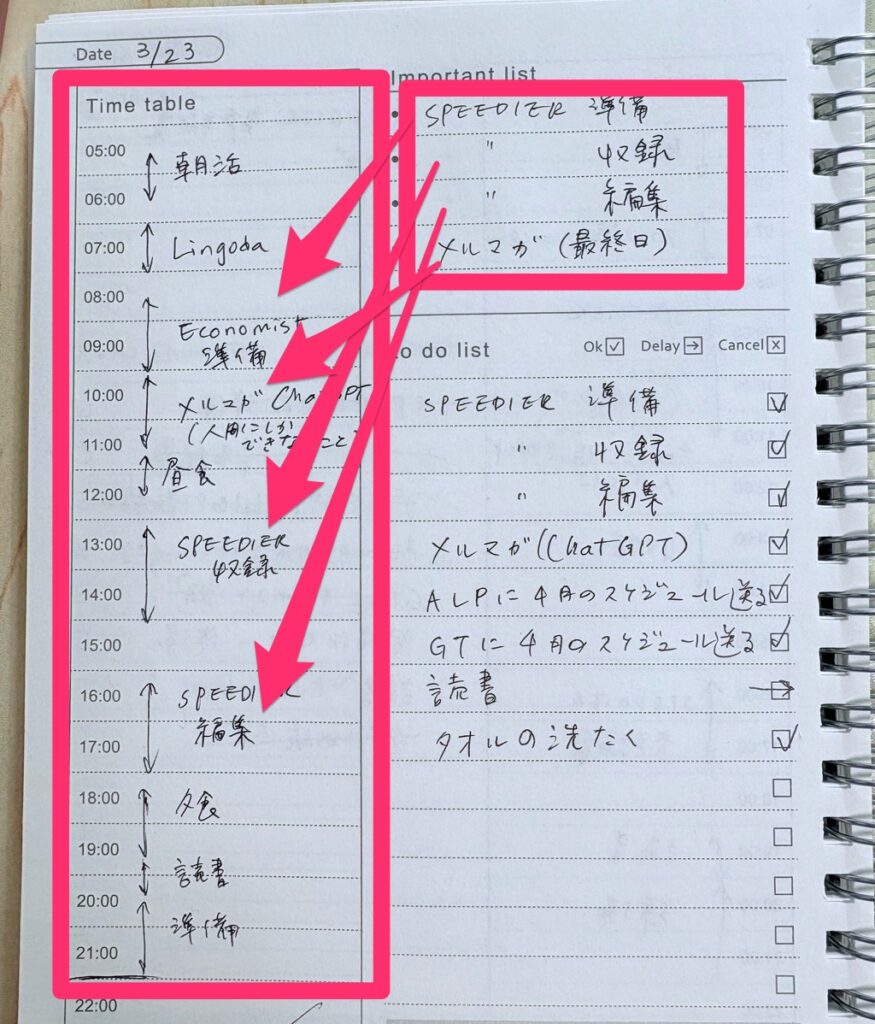 Date 3/23
Time table
05:00
朝活
06:00
07:00
Lingoda
08:00
Economist
09:00
準備
10:00
メルマガ ChatGPT
(人間にしか
11:00
できないこと)
昼食
12:00
13:00
SPEEDIER
収録
14:00
15:00
16:00
SPEEDIER
編集
17:00
18:00
夕食
19:00
読書
20:00
準備
21:00
22:00
Important list
SPEEDIER 準備
" 収録
" 編集
メルマガ (最終日)
to do list Ok Delay Cancel
SPEEDIER 準備
" 収録
" 編集
メルマガ(ChatGPT)
ALPに4月のスケジュール送る
GTに4月のスケジュール送る
読書
タオルの洗たく